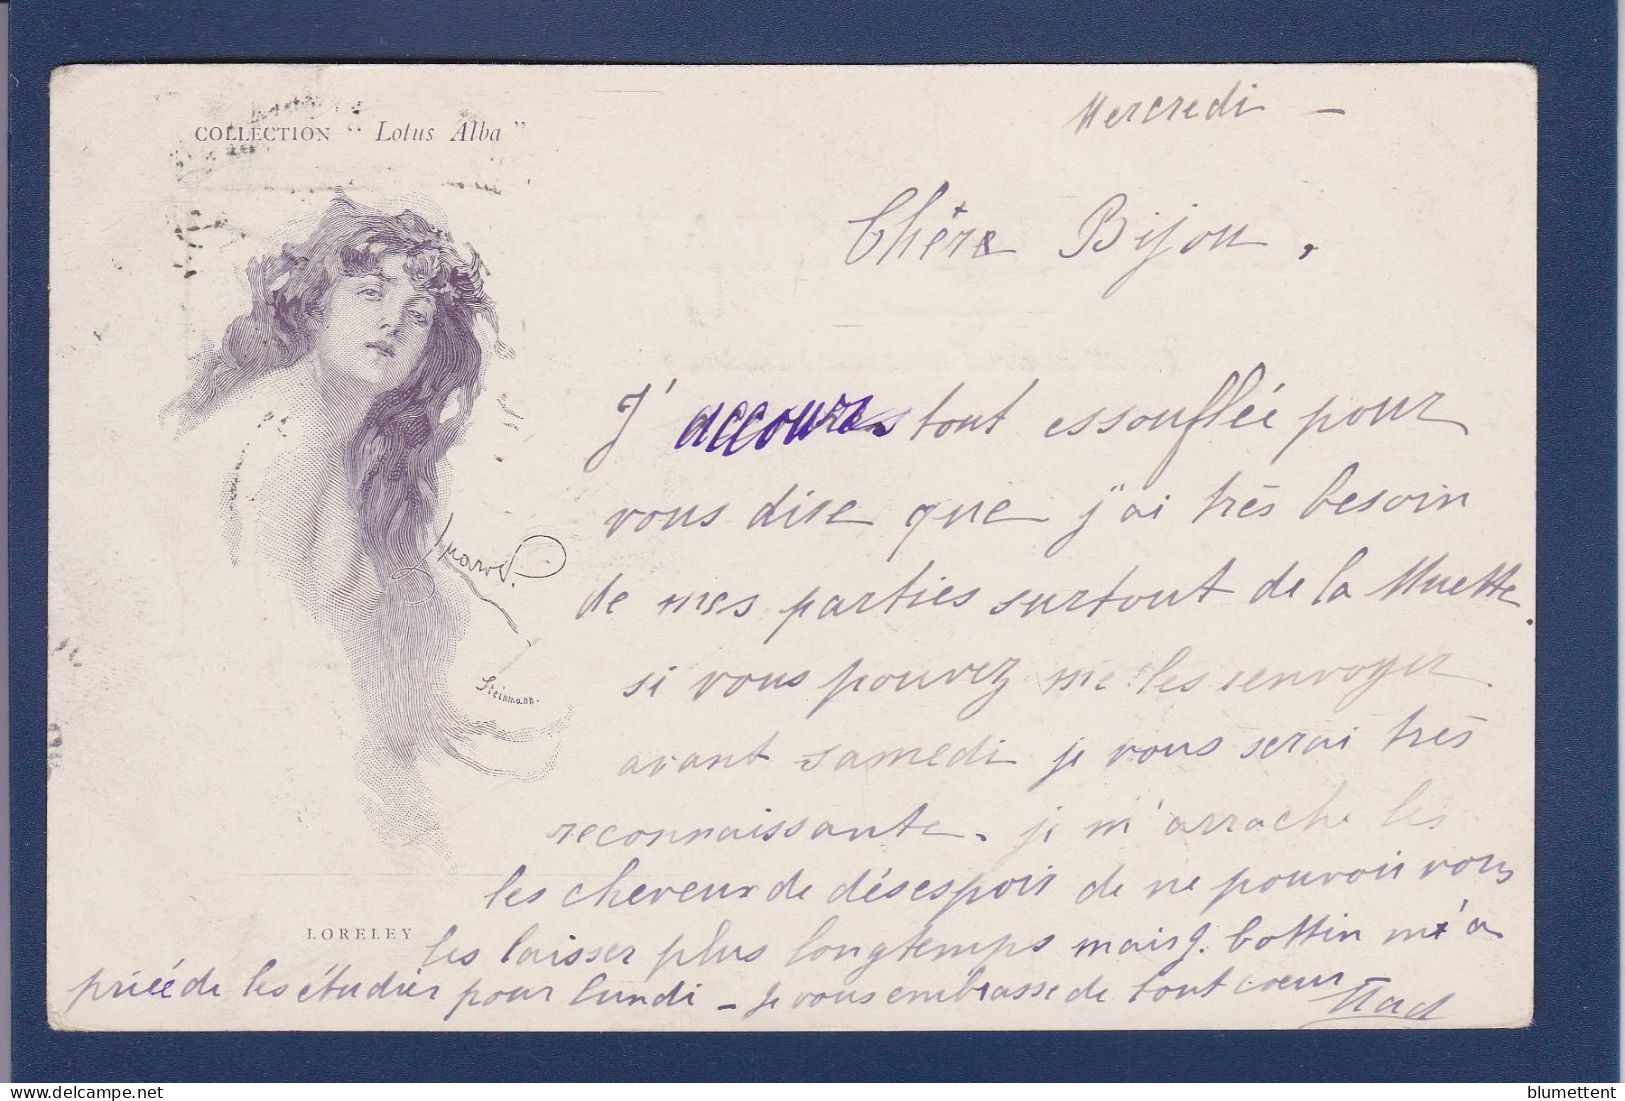 COLLECTION "Lotus Alba"
Mercredi —
Chère Bijou,
J'accours tout essoufflée pour
vous dire que j'ai très besoin
de mes parties surtout de la Muette.
si vous pouvez me les renvoyer
avant samedi je vous serai très
reconnaissante. je m'arrache les
les cheveux de désespoir de ne pouvoir vous
les laisser plus longtemps mais J. Cottin m'a
priée de les étudier pour lundi — je vous embrasse de tout coeur
Nad
Steinmann.
LORELEY
blumettent